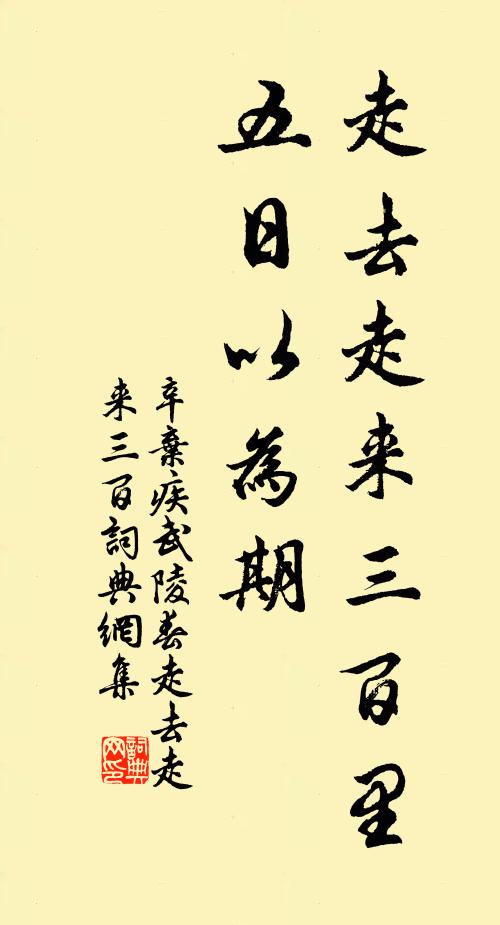 走去走来三百里
五日以為期
辛棄疾武陵春走去走
来三百詞典網集
詞典
网印